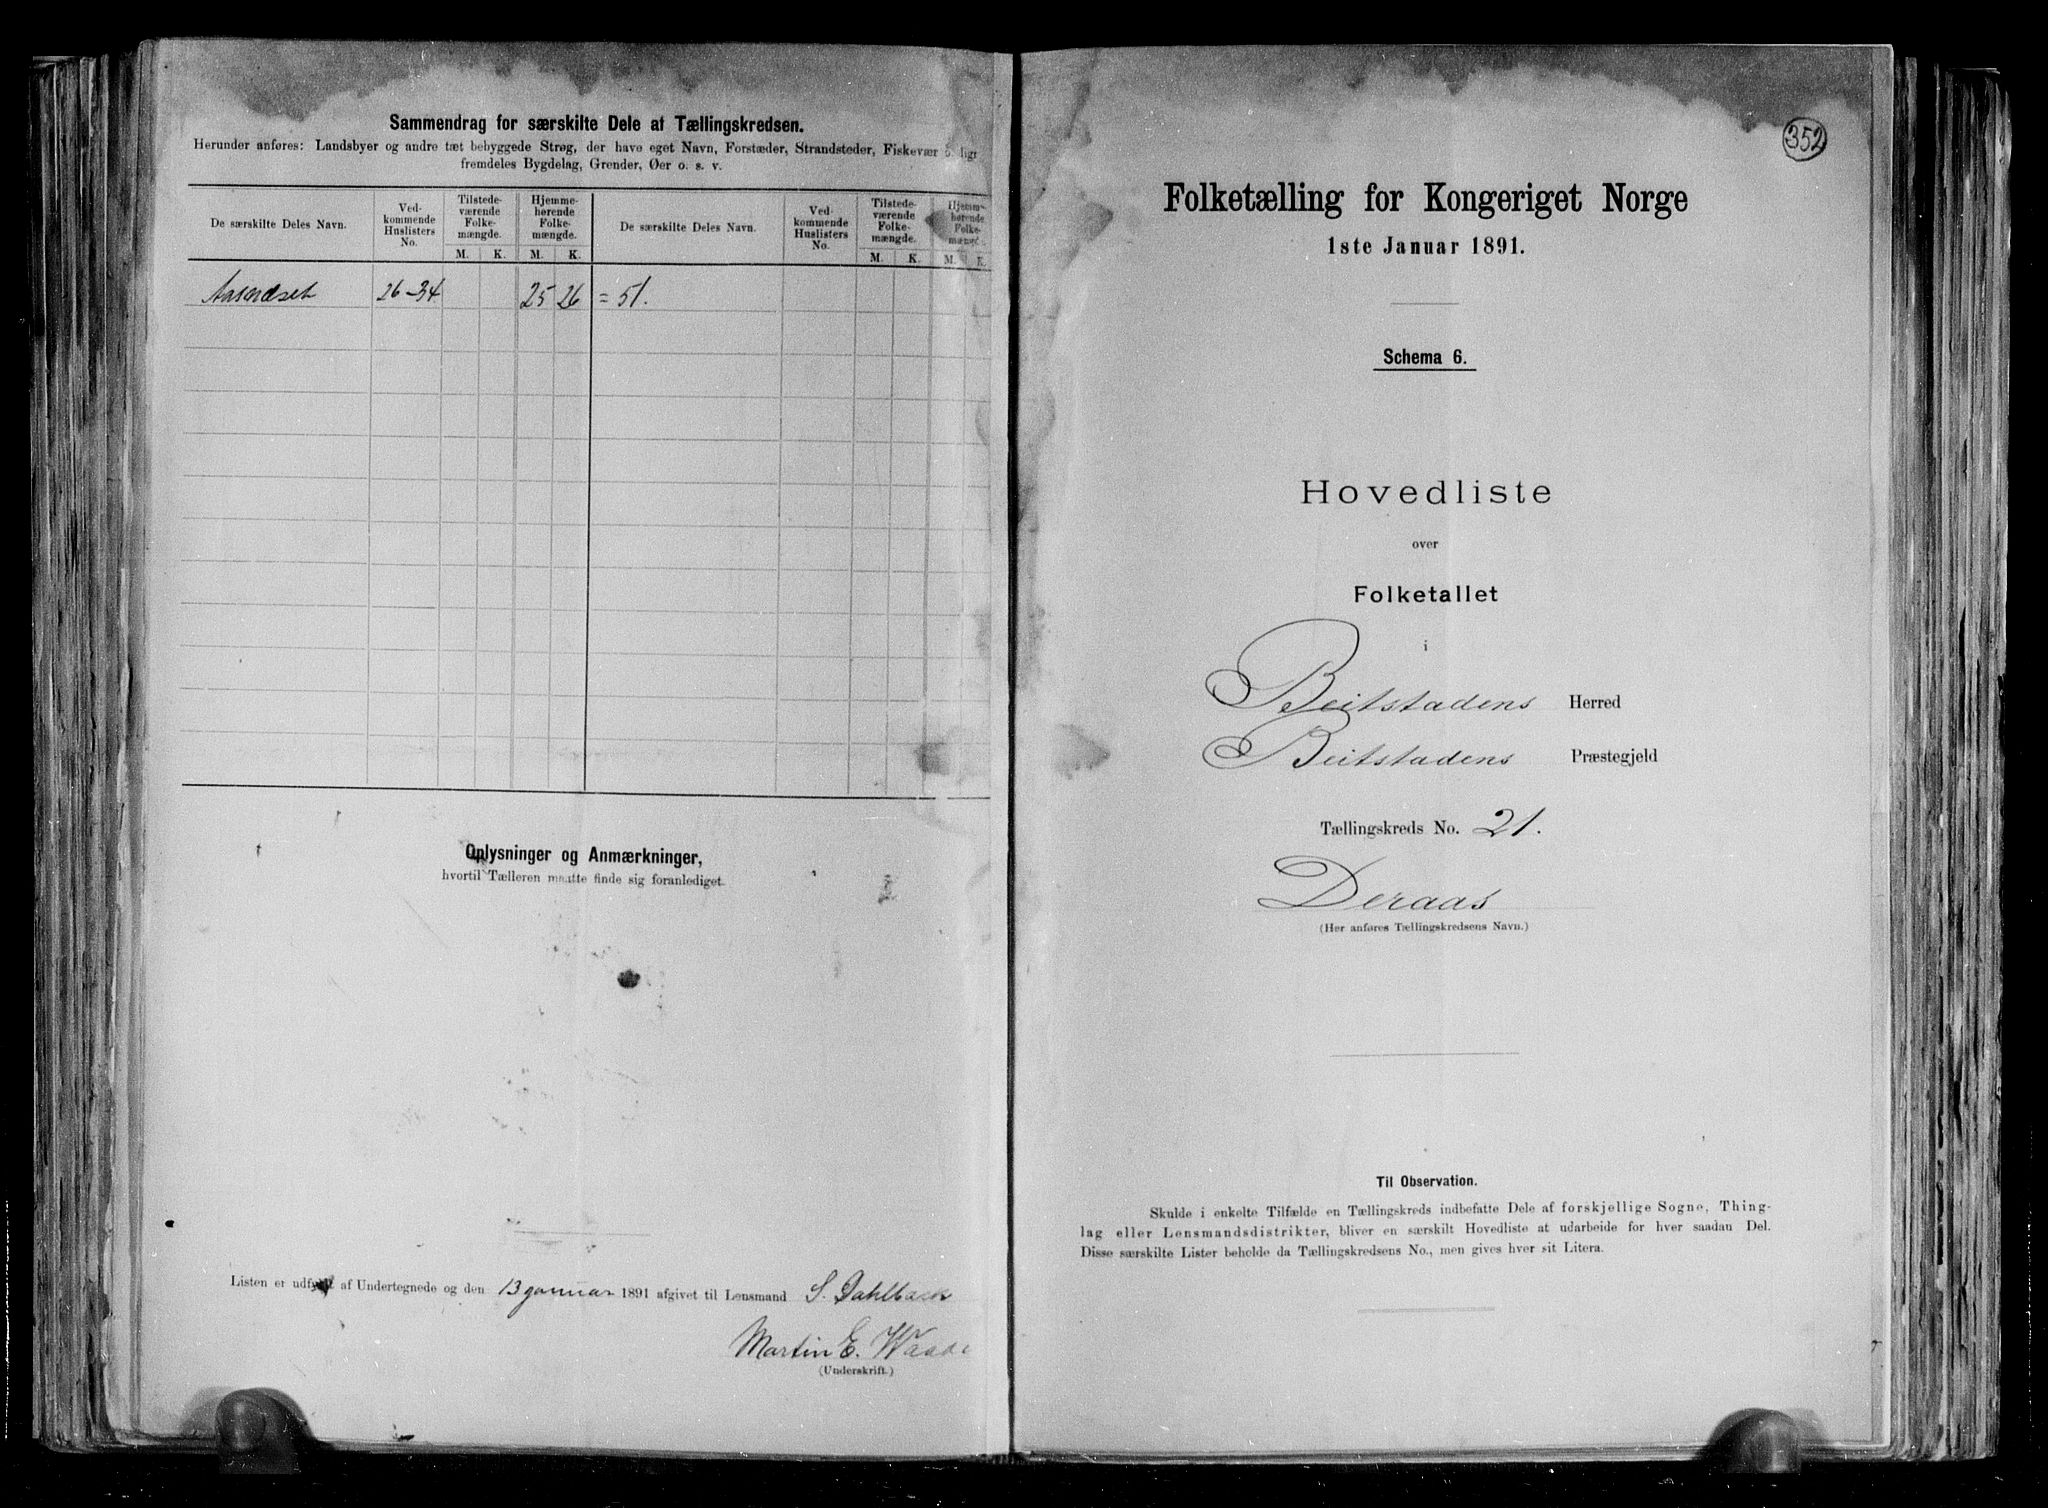 Sammendrag for særskilte Dele af Tællingskredsen.
Herunder anføres: Landsbyer og andre tæt bebyggede Strøg, der have eget Navn, Forstæder, Strandsteder, Fiskevær o. lign
fremdeles Bygdelag, Grender, Øer o. s. v.
De særskilte Deles Navn. Ved-kommende Huslisters No. Tilstede-værende Folke-mængde. Hjemme-hørende Folke-mængde. De særskilte Deles Navn. Ved-kommende Huslisters No. Tilstede-værende Folke-mængde. Hjemme-hørende Folke-mængde.
M. K. M. K. M. K. M. K.
26-34 25 26 = 51.
Oplysninger og Anmærkninger,
hvortil Tælleren maatte finde sig foranlediget.
Listen er udfyldt af Undertegnede og den 13 januar 1891 afgivet til Lensmand S. Dahlback
Martin E.
(Underskrift.)
352
Folketælling for Kongeriget Norge
1ste Januar 1891.
Schema 6.
Hovedliste
over
Folketallet
i
Beitstadens Herred
Beitstadens Præstegjeld
Tællingskreds No. 21.
Deraas
(Her anføres Tællingskredsens Navn.)
Til Observation.
Skulde i enkelte Tilfælde en Tællingskreds indbefatte Dele af forskjellige Sogne, Thing-
lag eller Lensmandsdistrikter, bliver en særskilt Hovedliste at udarbeide for hver saadan Del.
Disse særskilte Lister beholde da Tællingskredsens No., men gives hver sit Litera.